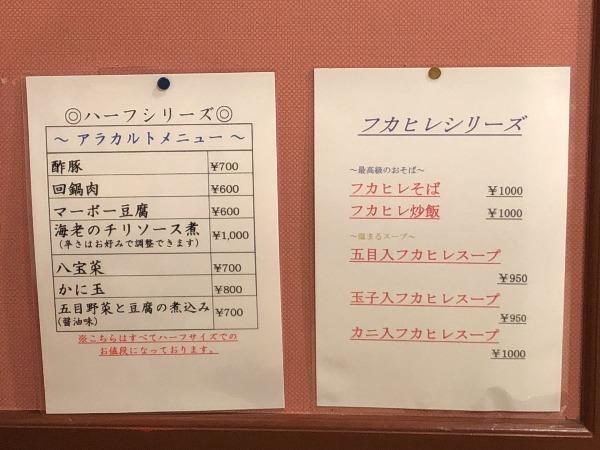 ◎ハーフシリーズ◎
～ アラカルトメニュー ～
酢豚 ¥700
回鍋肉 ¥600
マーボー豆腐 ¥600
海老のチリソース煮 ¥1,000
（辛さはお好みで調整できます）
八宝菜 ¥700
かに玉 ¥800
五目野菜と豆腐の煮込み ¥700
（醤油味）
※こちらはすべてハーフサイズでの
お値段になっております。
フカヒレシリーズ
～最高級のおそば～
フカヒレそば ¥1000
フカヒレ炒飯 ¥1000
～温まるスープ～
五目入フカヒレスープ
¥950
玉子入フカヒレスープ
¥950
カニ入フカヒレスープ
¥1000